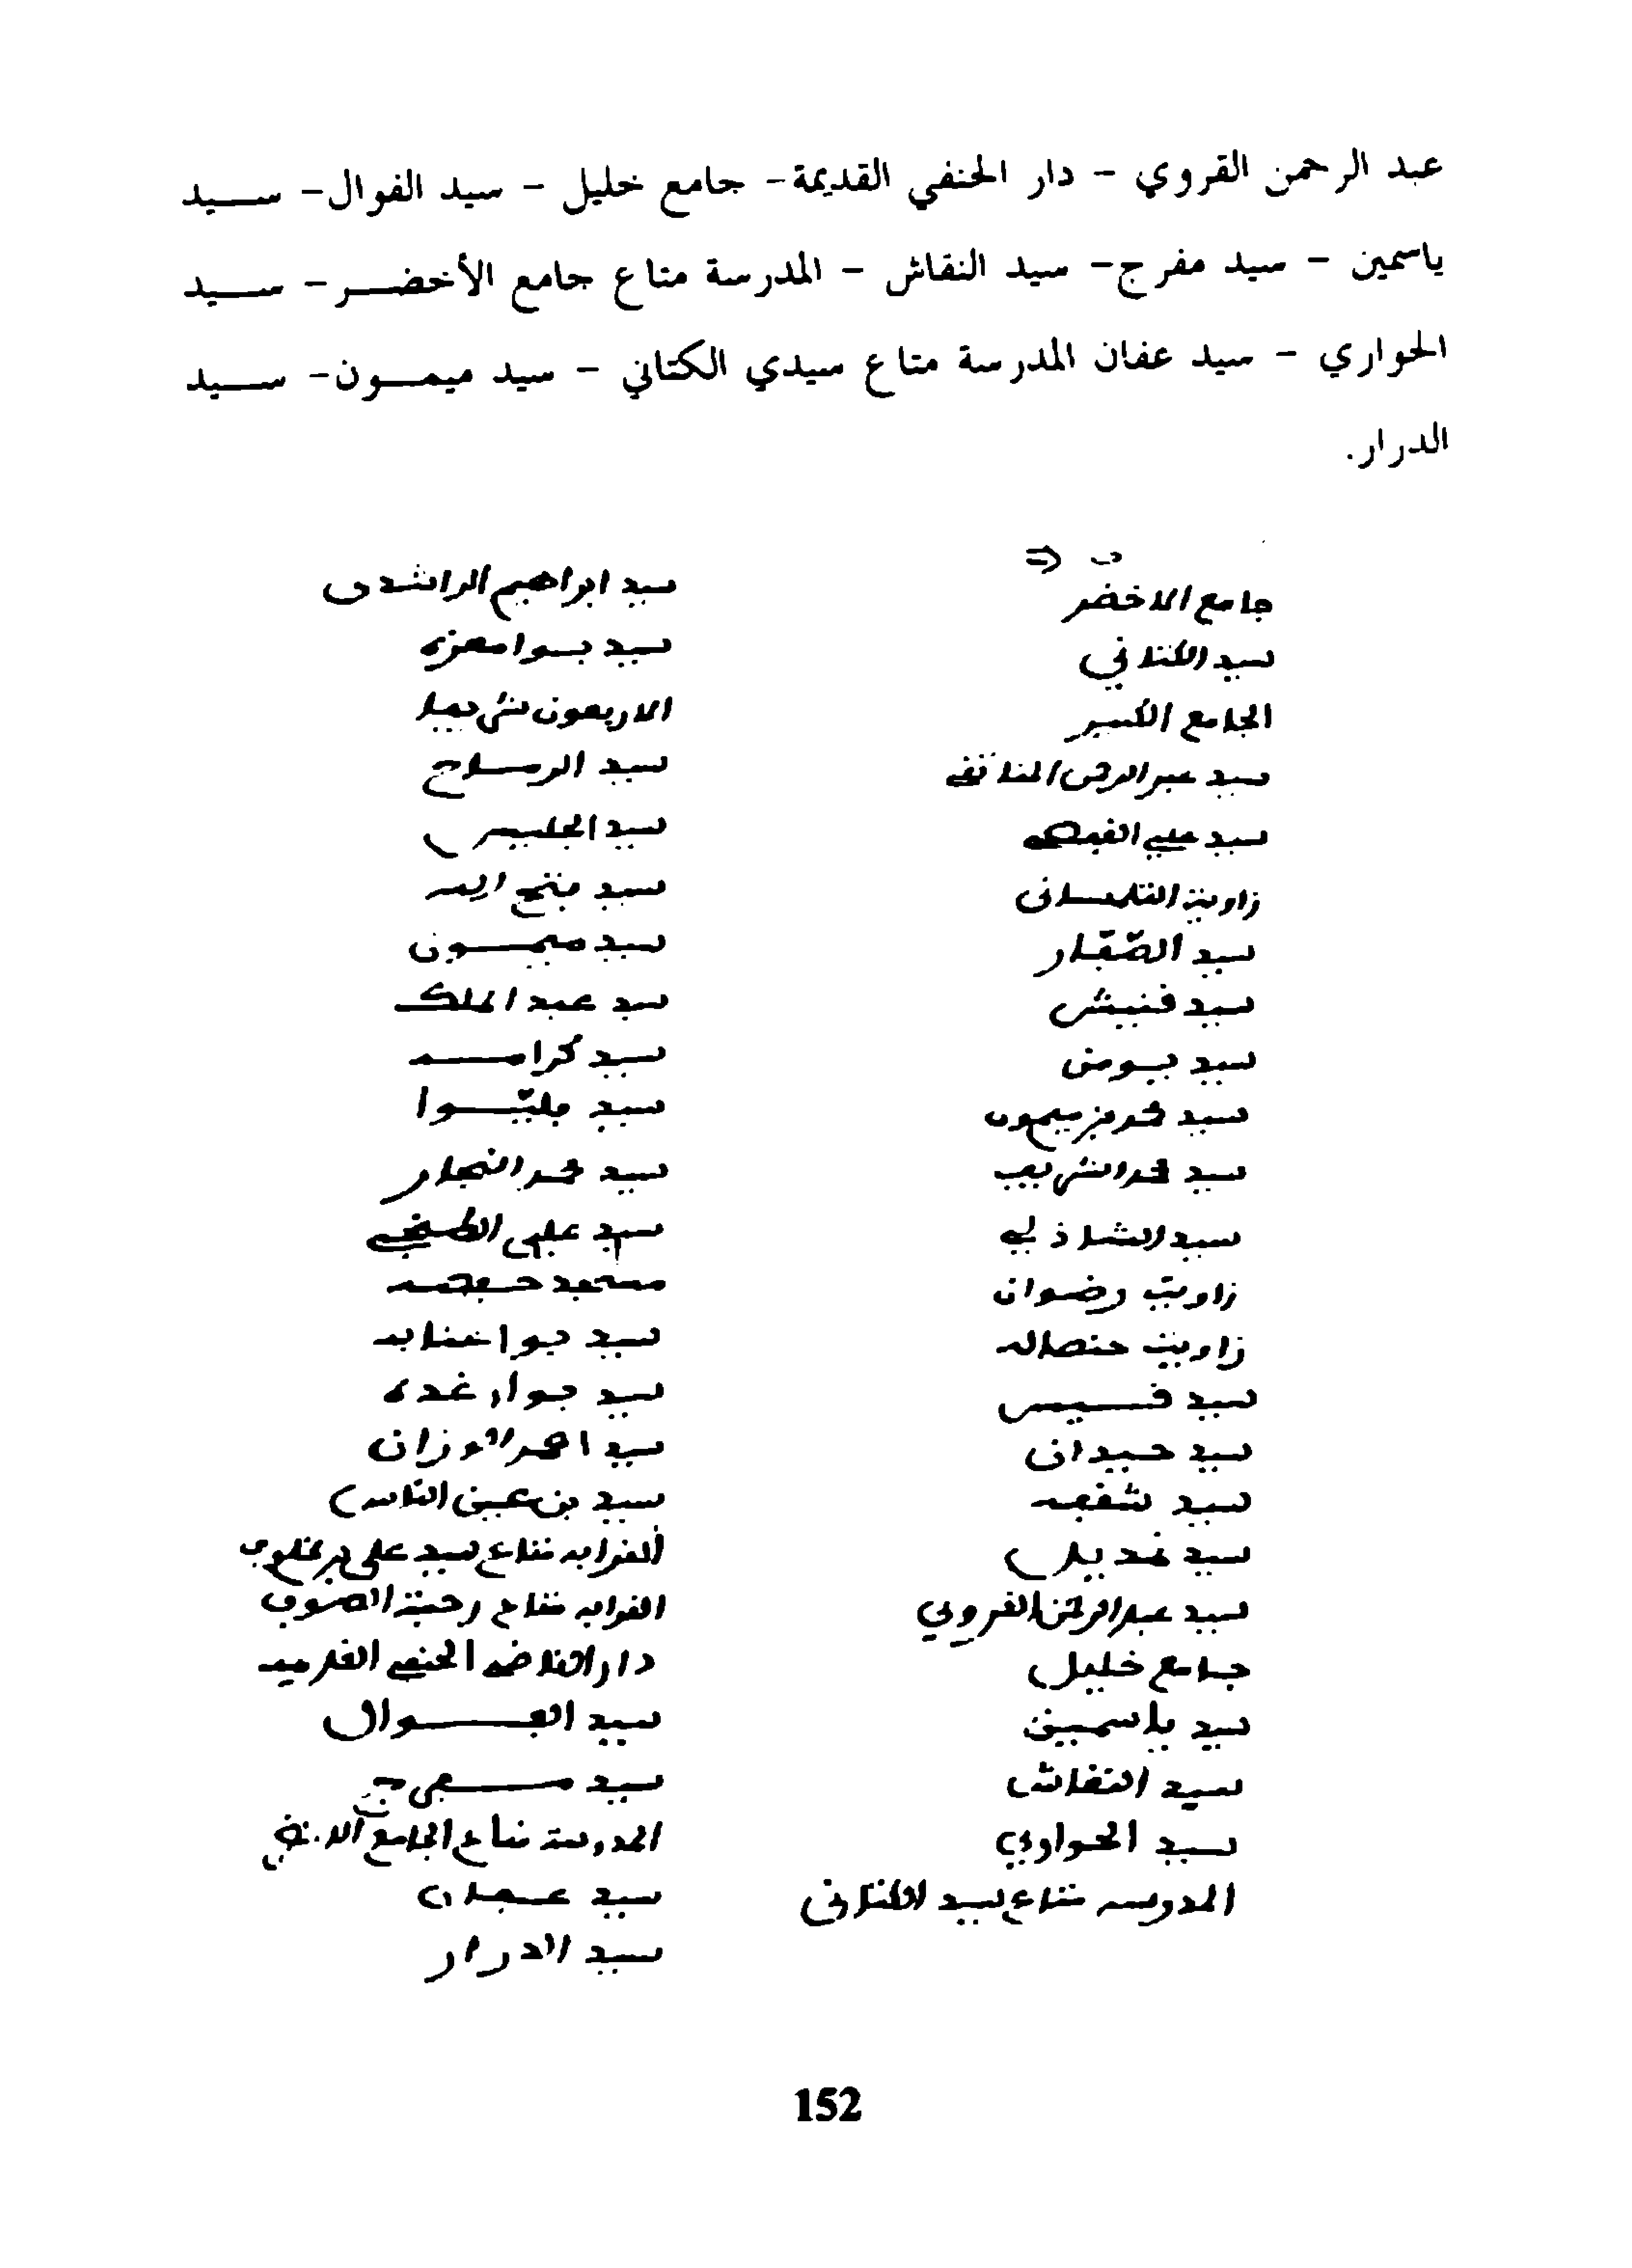 عبد الرحمن القروي – دار الحنفي القديمة– جامع خليل – سيد الفوال– سـيد
ياسمين – سيد مفرج– سيد النقاش – المدرسة متاع جامع الأخضـر– سـيد
الحواري – سيد عفان المدرسة متاع سيدي الكتاني – سيد ميمـون– سـيد
الدرار.
جامع الاخضر
سيد الكتاني
الجامع الكبير
سيد عبد الرحمن المناطقي
سيد علي القفصي
زاوية التلمساني
سيد الصفار
سيد فنيش
سيد بومض
سيد محمد بن ميمون
سيد محمد الشريف
سيد الشاذلي
زاوية رضوان
زاوية حنصاله
سيد قيس
سيد حيدان
سيد شقفه
سيد غديل
سيد عبد الرحمن القروي
جامع خليل
سيد ياسمين
سيد النقاش
سيد الحواري
المدرسه متاع سيد الكتاني
سيد ابراهيم الراشدي
سيد بوا معزه
الاربعون شريفا
سيد الرماح
سيد الجليس
سيد مفتح
سيد ميمون
سيد عبد الملك
سيد كرامه
سيد محمد النجار
سيد علي الطنجي
مسجد حفصه
سيد بوا عنابه
سيد بوا رغده
سيد احمد الوزان
سيد بن عين الناس
القرابه متاع سيد علي بن مخلوف
القرابه متاع رحبة الصوف
دار القاضي الحنفي القديمه
سيد الفوال
سيد مفرج
المدرسة متاع الجامع الاخضر
سيد عفان
سيد الدرار
152